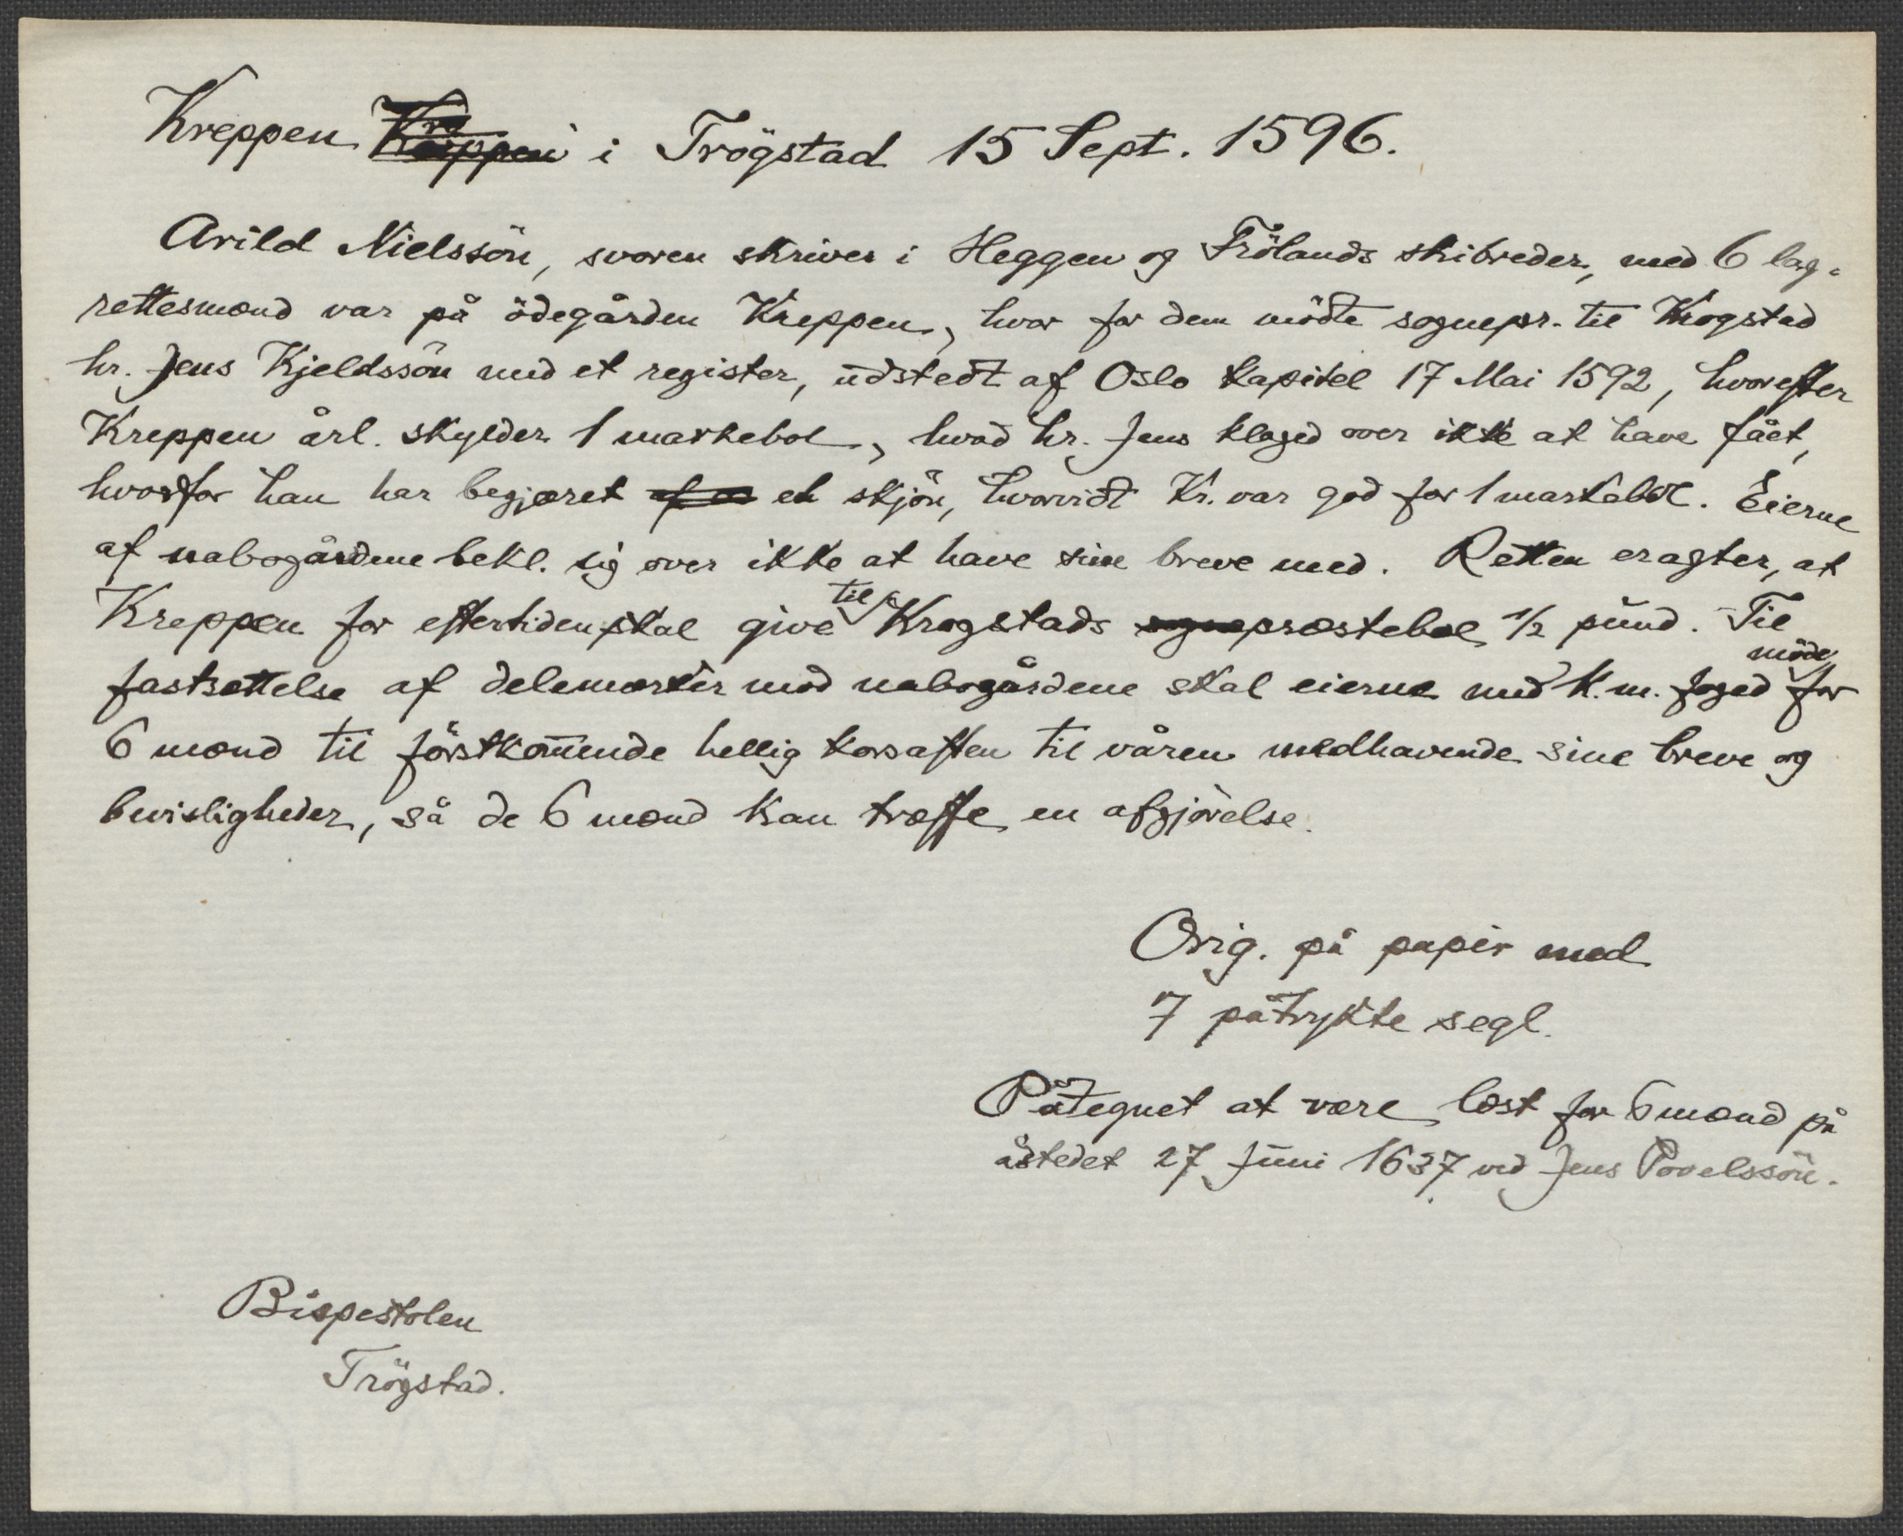 Kreppen i Trögstad 15 Sept. 1596.
Arild Nielssön, svoren skriver i Heggen og Frölands skibreder, med 6 lag-
rettesmænd var på ödegården Kreppen, hvor for dem mödte sognepr. til Krogstad
hr. Jens Kjeldssön med et register, udstedt af Oslo kapitel 17 Mai 1592, hvorefter
Kreppen årl. skylder 1 markebol, hvad hr. Jens klaged over ikke at have fået,
hvorfor han har begjæret et skjön, hvorvidt Kr. var god for 1 markebol. Eierne
af nabogårdene bekl. sig over ikke at have sine breve med. Retten eragter, at
Kreppen for eftertiden skal give til Krogstads præstebol ½ pund. Til
fastsættelse af delemærker mod nabogårdene skal eierne med k. m. foged möde for
6 mænd til förstkommende hellig korsaften til våren medhavende sine breve og
bevisligheder, så de 6 mænd kan træffe en afgjörelse.
Orig. på papir med
7 påtrykte segl.
Påtegnet at være læst for 6 mænd på
åstedet 27 Juni 1637 ved Jens Povelssön.
Bispestolen
Trögstad.